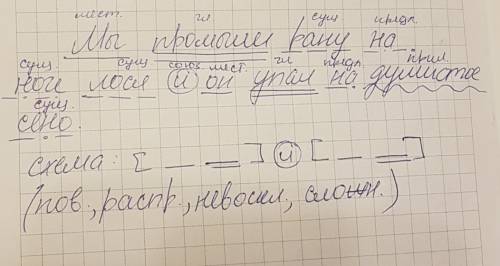 мест. гл. сущ. предл.
Мы промыли рану на
сущ. сущ. союз мест. гл. предл. прил.
ноге лося и он упал на душистое
сущ.
сено.
схема: [ _ = ] и [ _ = ]
(пов., распр., невоскл, сложн.)